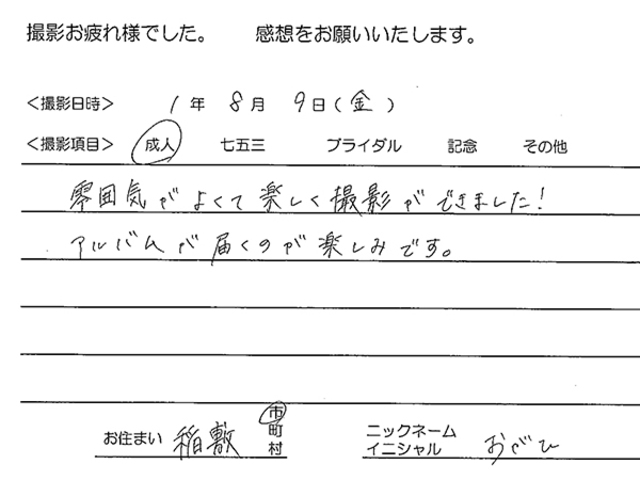 撮影お疲れ様でした。　感想をお願いいたします。
<撮影日時>　1年 8月 9日（金）
<撮影項目>　成人　七五三　ブライダル　記念　その他
雰囲気がよくて楽しく撮影ができました！
アルバムが届くのが楽しみです。
お住まい　稲敷　市町村　ニックネーム イニシャル　おがひ